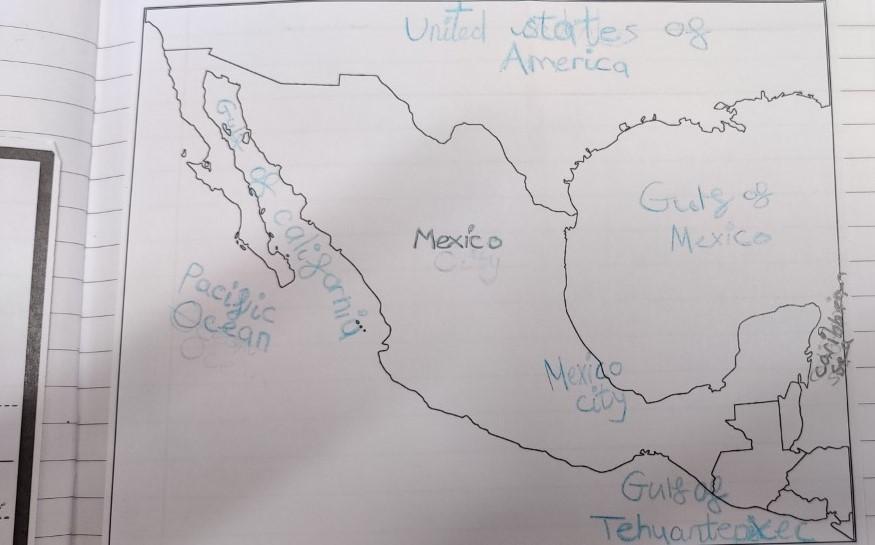 United states of
America
Gulf of california
Gulf of
Mexico
Mexico
City
Pacific
Ocean
caribbean
sea
Mexico
city
Gulf of
Tehuantepec